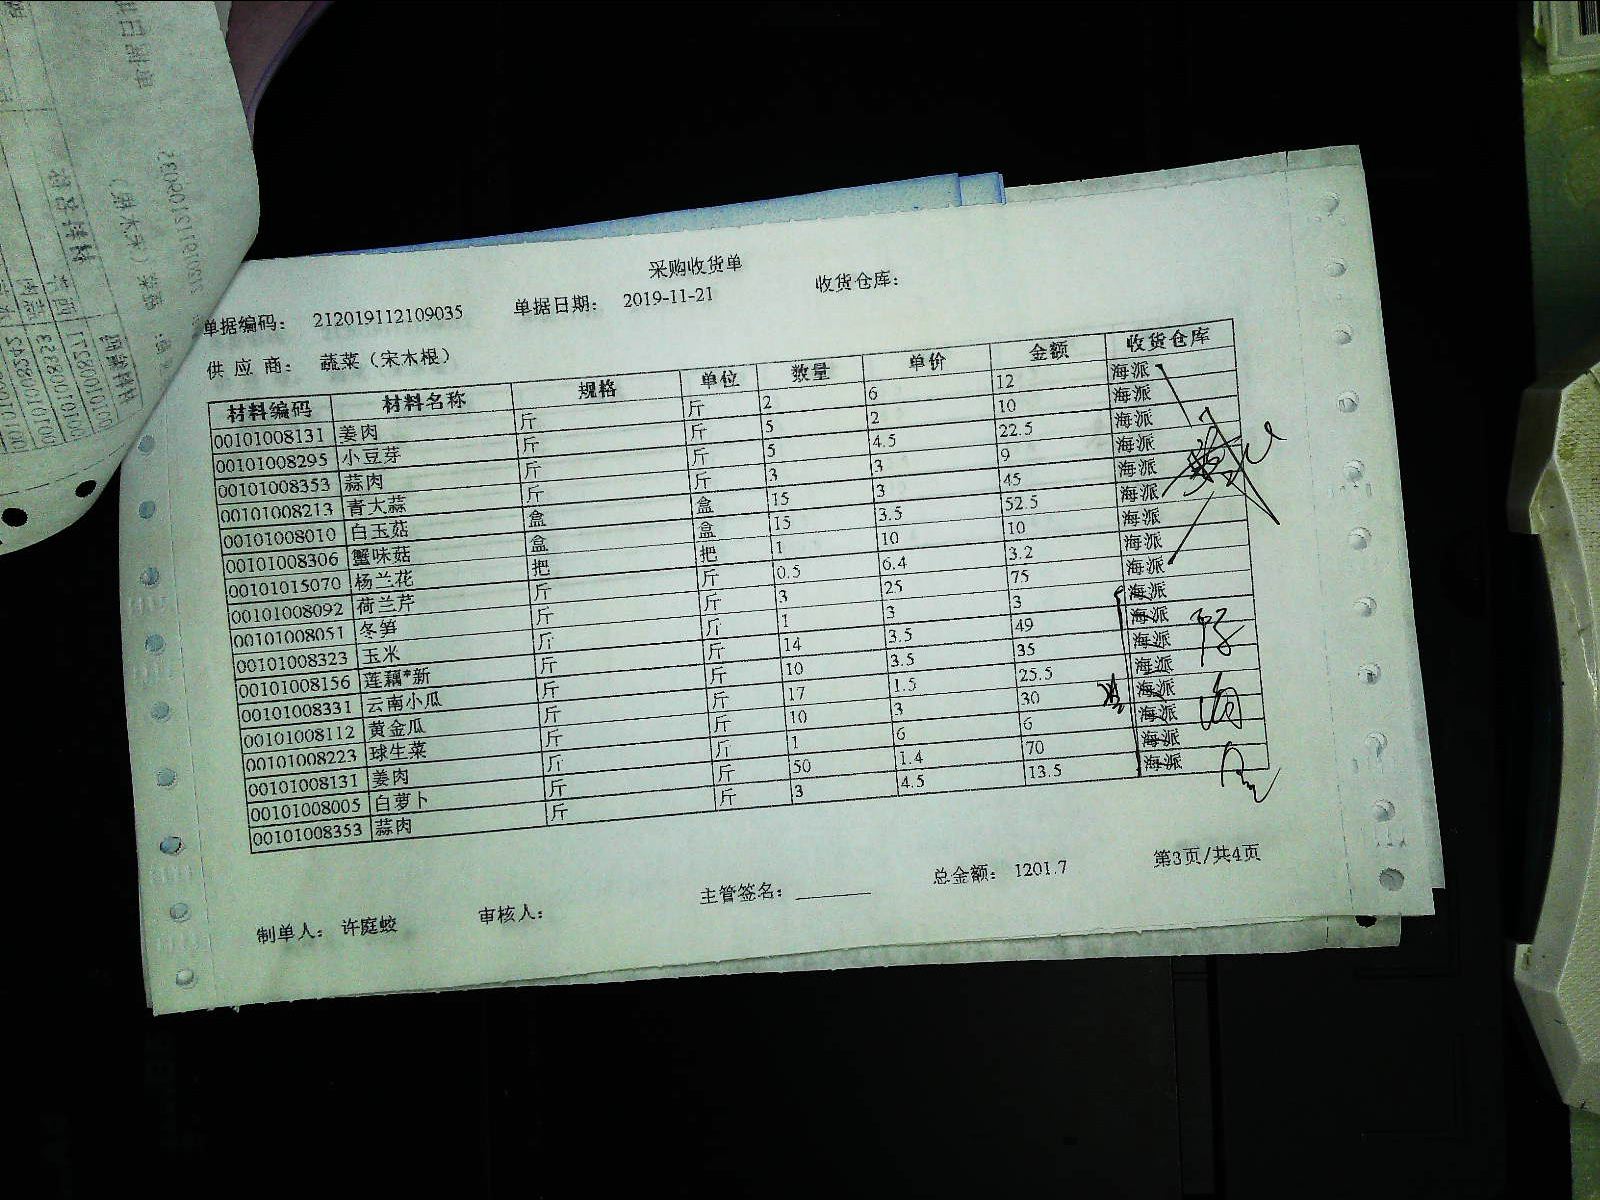 采购收货单
单据编码： 212019112109035 单据日期： 2019-11-21 收货仓库：
供 应 商： 蔬菜（宋木根）
材料编码 材料名称 规格 单位 数量 单价 金额 收货仓库
00101008131 姜肉 斤 斤 2 6 12 海派
00101008295 小豆芽 斤 斤 5 2 10 海派
00101008353 蒜肉 斤 斤 5 4.5 22.5 海派
00101008213 青大蒜 斤 斤 3 3 9 海派
00101008010 白玉菇 盒 盒 15 3 45 海派
00101008306 蟹味菇 盒 盒 15 3.5 52.5 海派
00101015070 杨兰花 把 把 1 10 10 海派
00101008092 荷兰芹 斤 斤 0.5 6.4 3.2 海派
00101008051 冬笋 斤 斤 3 25 75 海派
00101008323 玉米 斤 斤 1 3 3 海派
00101008156 莲藕*新 斤 斤 14 3.5 49 海派
00101008331 云南小瓜 斤 斤 10 3.5 35 海派
00101008112 黄金瓜 斤 斤 17 1.5 25.5 海派
00101008223 球生菜 斤 斤 10 3 30 海派
00101008131 姜肉 斤 斤 1 6 6 海派
00101008005 白萝卜 斤 斤 50 1.4 70 海派
00101008353 蒜肉 斤 斤 3 4.5 13.5 海派
制单人： 许庭蛟 审核人： 主管签名： 总金额： 1201.7 第3页/共4页